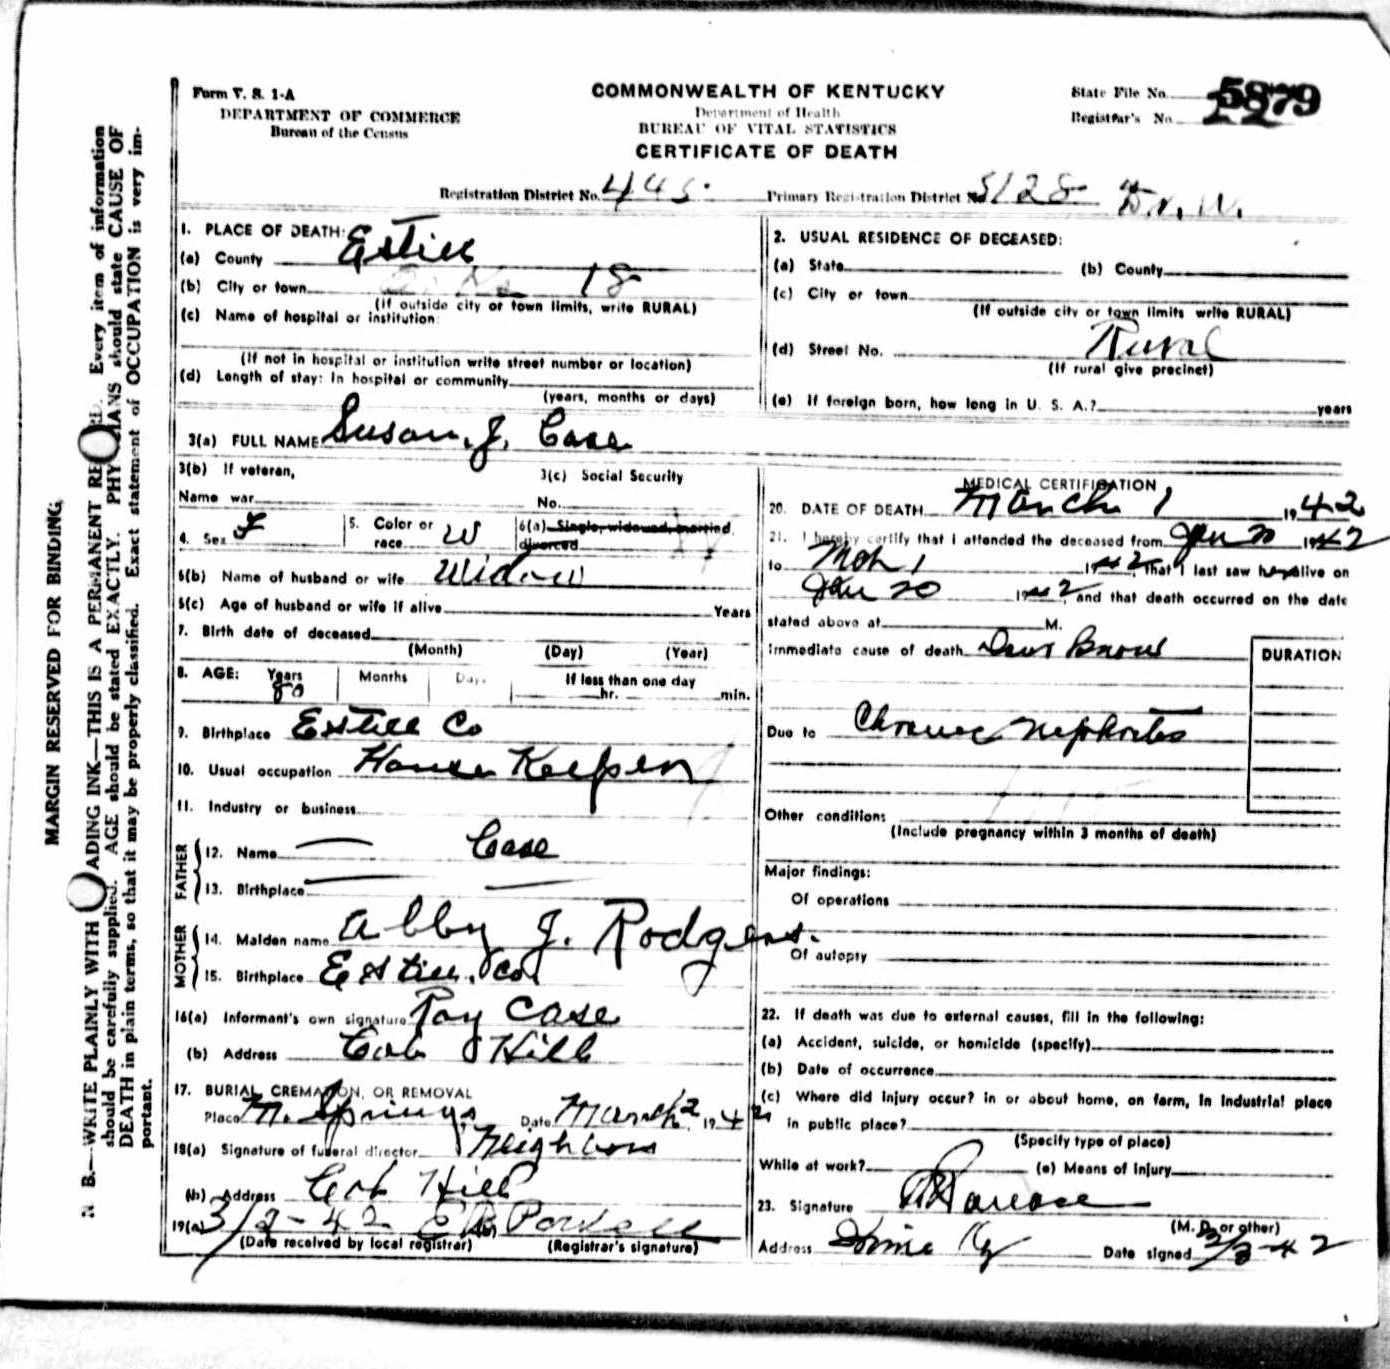 Form V. S. 1-A
DEPARTMENT OF COMMERCE
Bureau of the Census
COMMONWEALTH OF KENTUCKY
Department of Health
BUREAU OF VITAL STATISTICS
CERTIFICATE OF DEATH
State File No. 5879
Registrar's No.
Registration District No. 445. Primary Registration District No. 5128
1. PLACE OF DEATH:
(a) County Estill
(b) City or town 18
(If outside city or town limits, write RURAL)
(c) Name of hospital or institution:
(If not in hospital or institution write street number or location)
(d) Length of stay: In hospital or community
(years, months or days)
2. USUAL RESIDENCE OF DECEASED:
(a) State (b) County
(c) City or town
(If outside city or town limits write RURAL)
(d) Street No. Rural
(If rural give precinct)
(e) If foreign born, how long in U. S. A.? years
3(a) FULL NAME Susan. J. Case
3(b) If veteran,
Name war
3(c) Social Security
No.
4. Sex F
5. Color or race W
6(a) Single, widowed, married, divorced
6(b) Name of husband or wife Widow
6(c) Age of husband or wife if alive Years
7. Birth date of deceased
(Month) (Day) (Year)
8. AGE: Years 80 Months Days If less than one day
hr. min.
9. Birthplace Estill Co
10. Usual occupation House Keeper
11. Industry or business
FATHER
12. Name Case
13. Birthplace
MOTHER
14. Maiden name Abby J. Rodgers.
15. Birthplace Estill. Co.
16(a) Informant's own signature Roy Case
(b) Address Cob Hill
17. BURIAL, CREMATION, OR REMOVAL
Place M. Springs Date March 2, 1942
18(a) Signature of funeral director Neighbors
(b) Address Cob Hill
19(a) 3/2-42 (b)
(Date received by local registrar) (Registrar's signature)
MEDICAL CERTIFICATION
20. DATE OF DEATH March 1 1942
21. I hereby certify that I attended the deceased from Jan 20 1942
to Mch 1 1942, that I last saw h alive on
Jan 20 1942, and that death occurred on the date
stated above at M.
Immediate cause of death
DURATION
Due to Chronic Nephritis
Other conditions
(Include pregnancy within 3 months of death)
Major findings:
Of operations
Of autopsy
22. If death was due to external causes, fill in the following:
(a) Accident, suicide, or homicide (specify)
(b) Date of occurrence
(c) Where did injury occur? in or about home, on farm, in industrial place
in public place?
(Specify type of place)
While at work? (e) Means of injury
23. Signature
(M. D. or other)
Address Irvine Ky Date signed 3/3-42
MARGIN RESERVED FOR BINDING
N. B.—WRITE PLAINLY WITH ADING INK—THIS IS A PERMANENT RE RD. Every item of information
should be carefully supplied. AGE should be stated EXACTLY. PHY IANS should state CAUSE OF
DEATH in plain terms, so that it may be properly classified. Exact statement of OCCUPATION is very im-
portant.